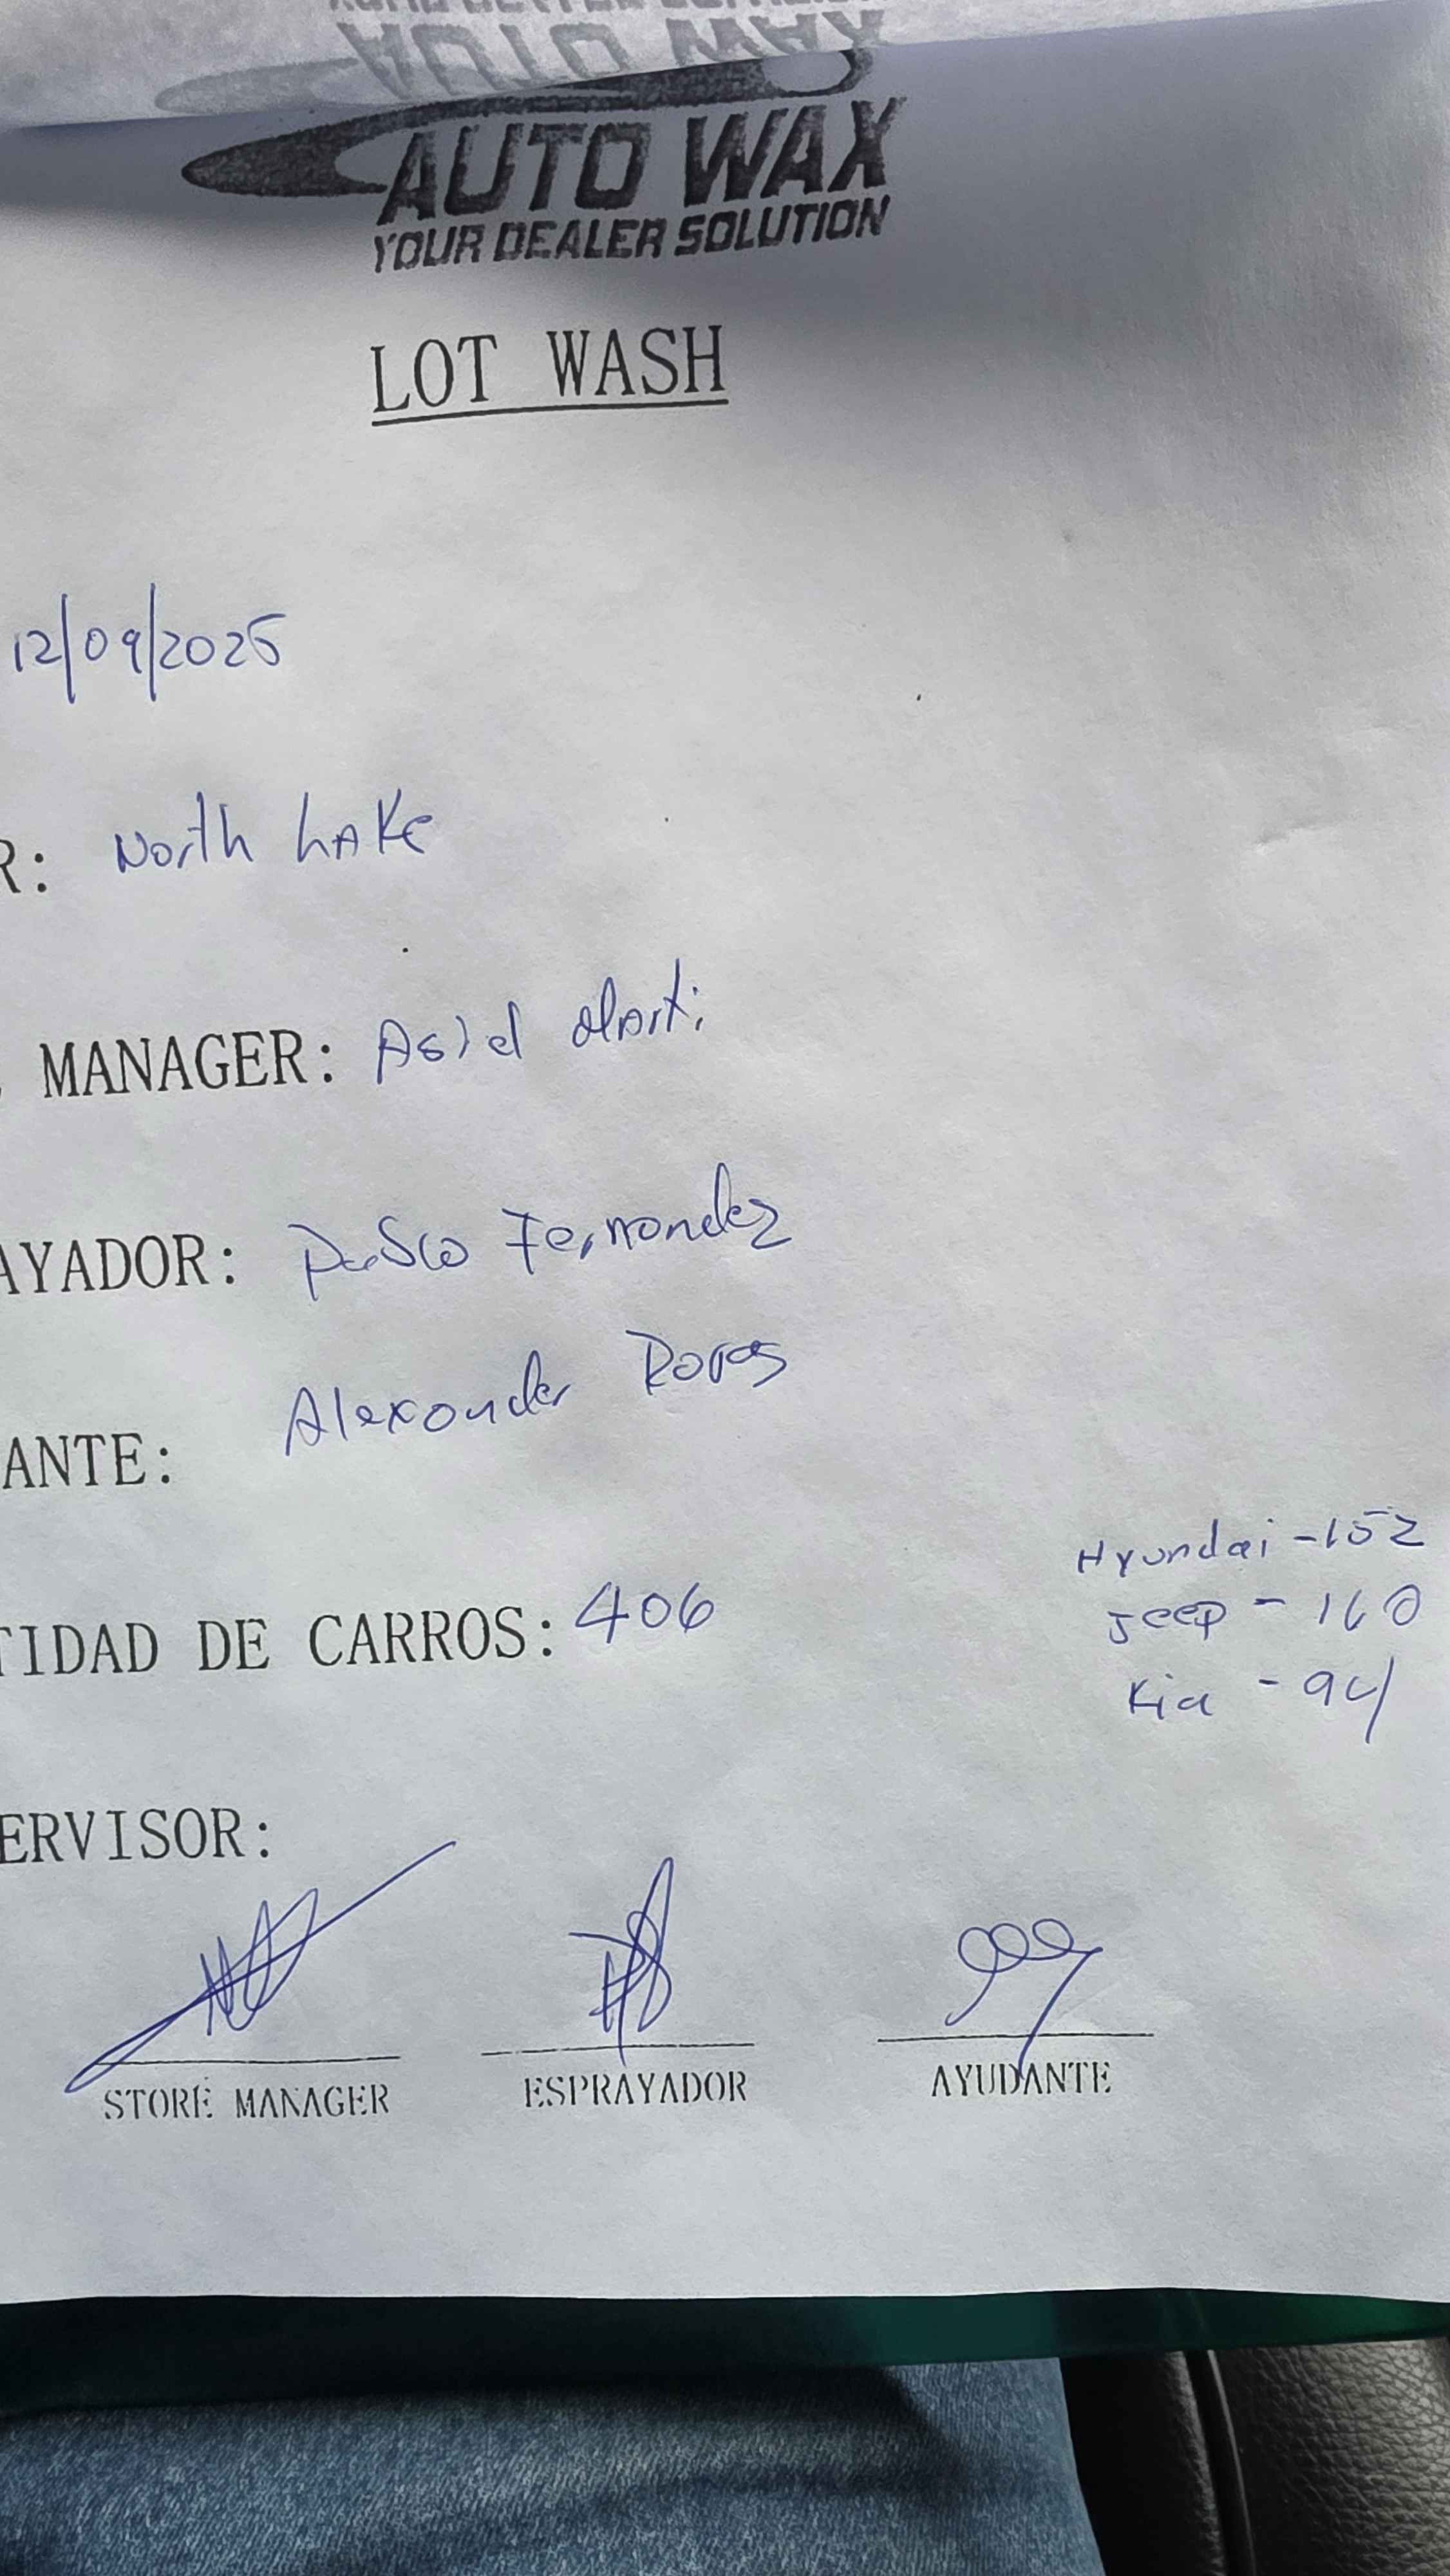 AUTO WAX
AUTO WAX
YOUR DEALER SOLUTION
LOT WASH
12/09/2025
R: North Lake
MANAGER: Asiel Marti
AYADOR: Fernandez
Alexander
ANTE:
Hyundai - 152
TIDAD DE CARROS: 406
Jeep - 160
Kia - 94
ERVISOR:
STORE MANAGER ESPRAYADOR AYUDANTE